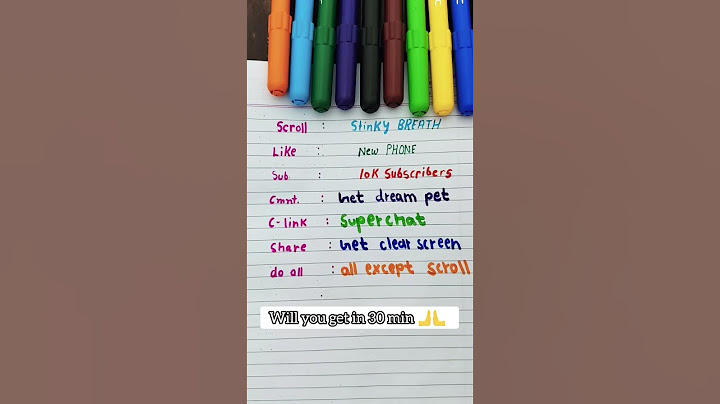 Scroll : Stinky BREATH
Like : New PHONE
Sub : 10K Subscribers
Cmnt. : Get dream pet
C-link : Superchat
Share : Get clear screen
do all : all except scroll
:
Will you get in 30 min